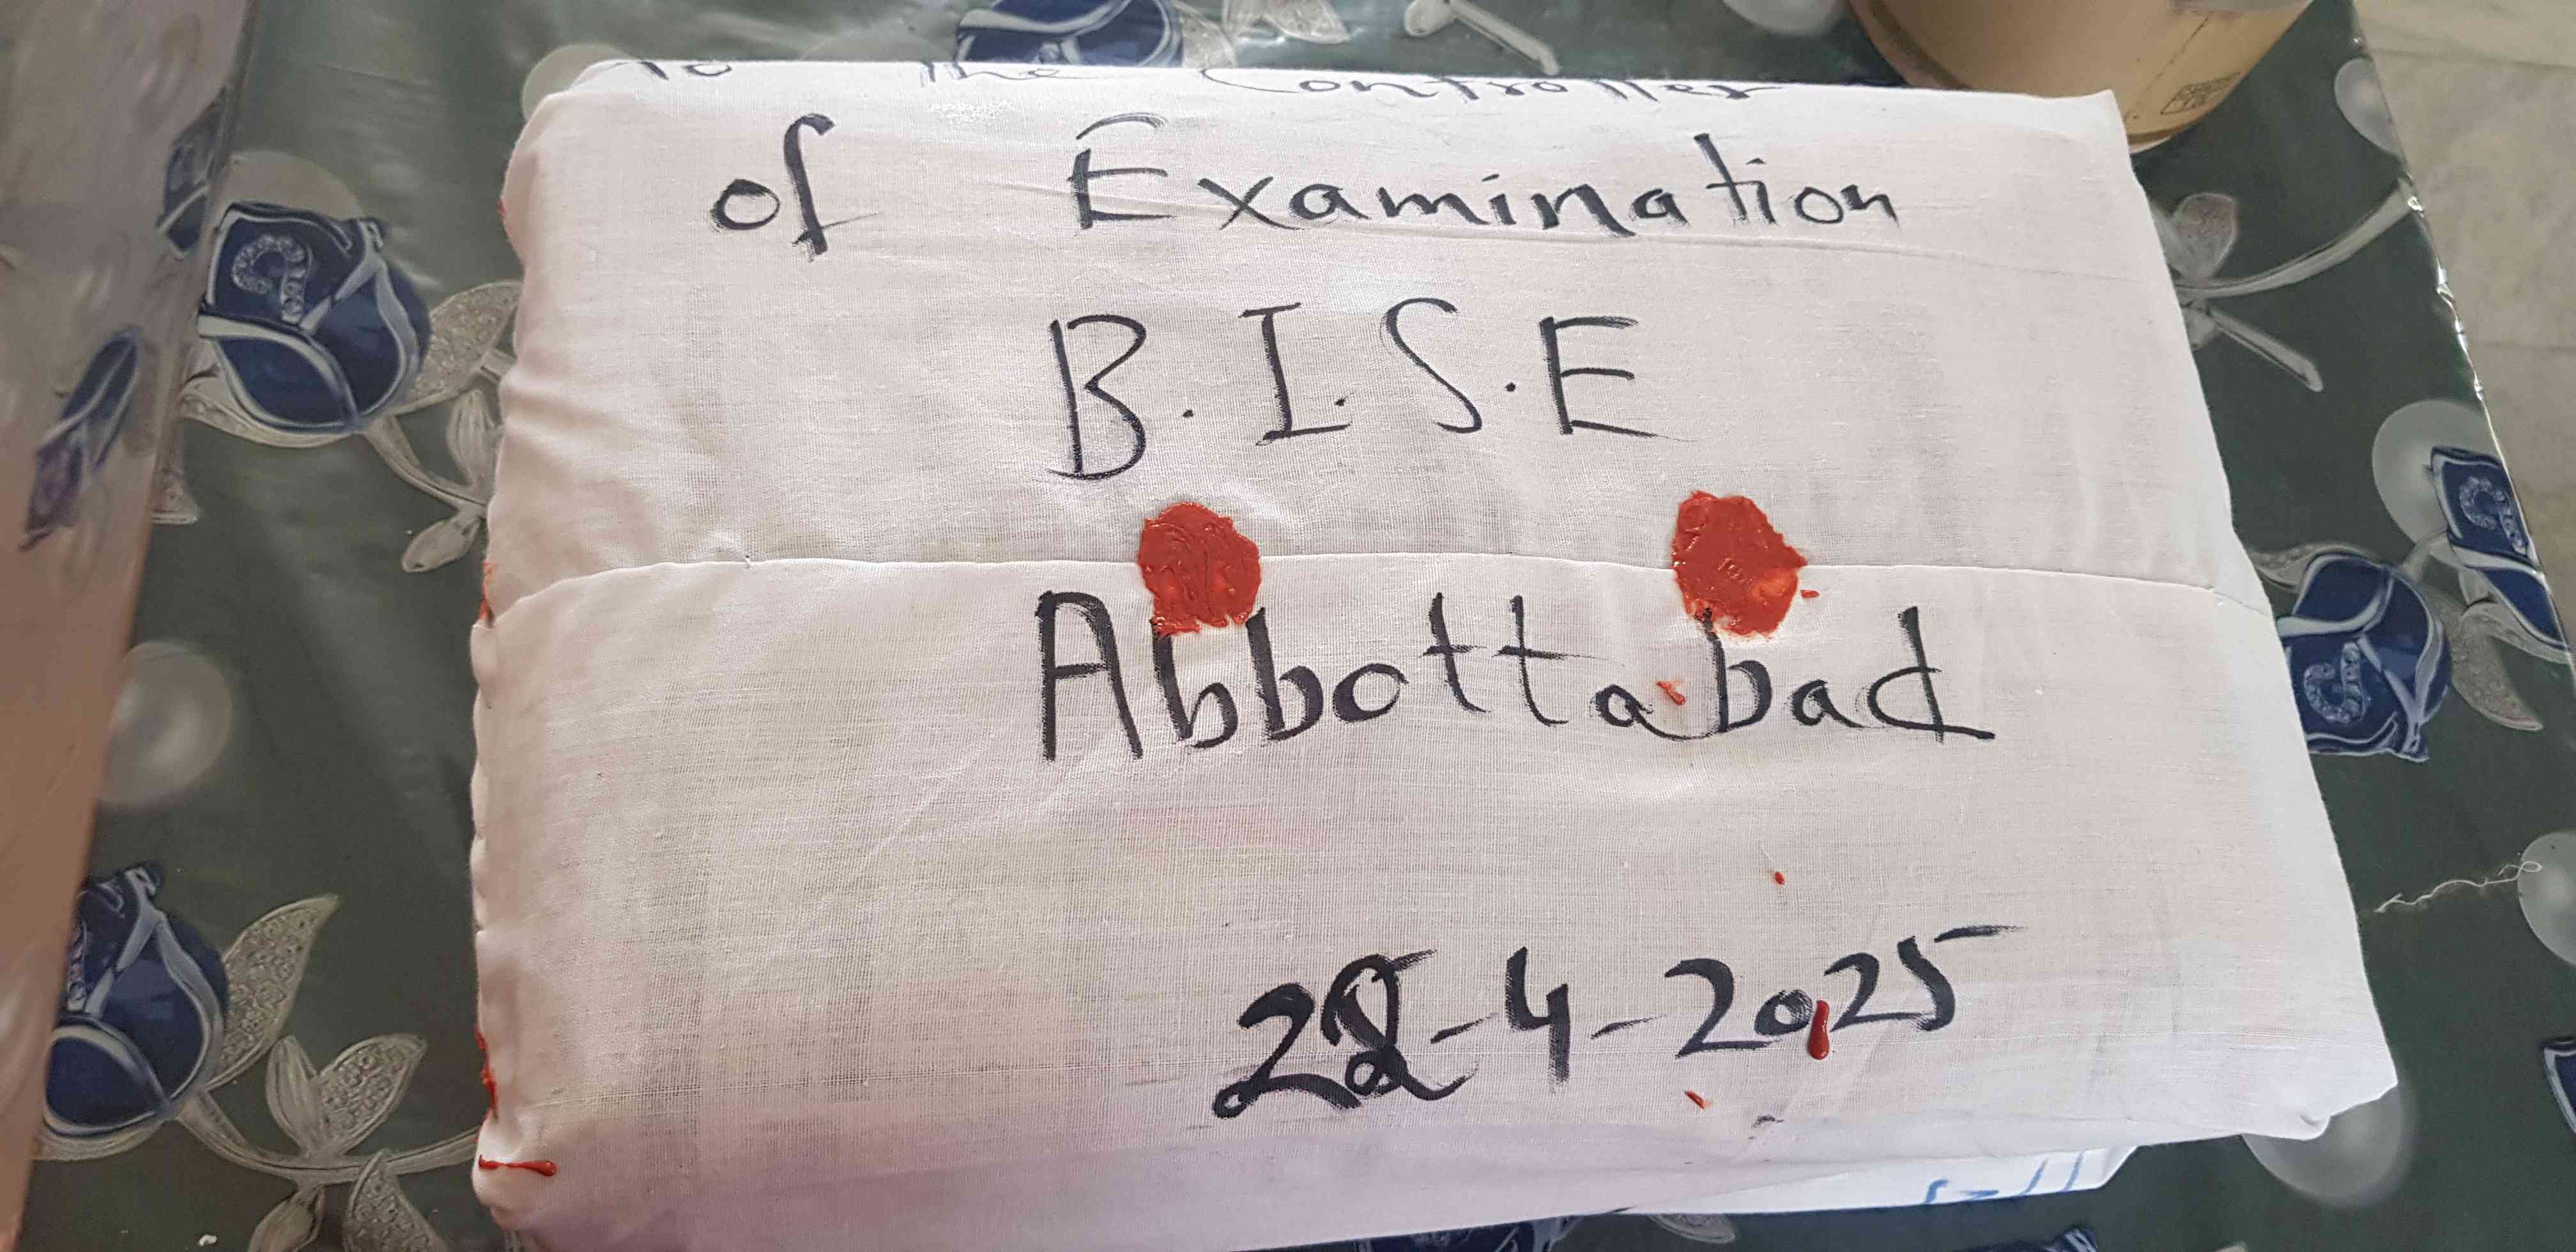 To The Controller
of Examination
B.I.S.E
Abbottabad
22-4-2025